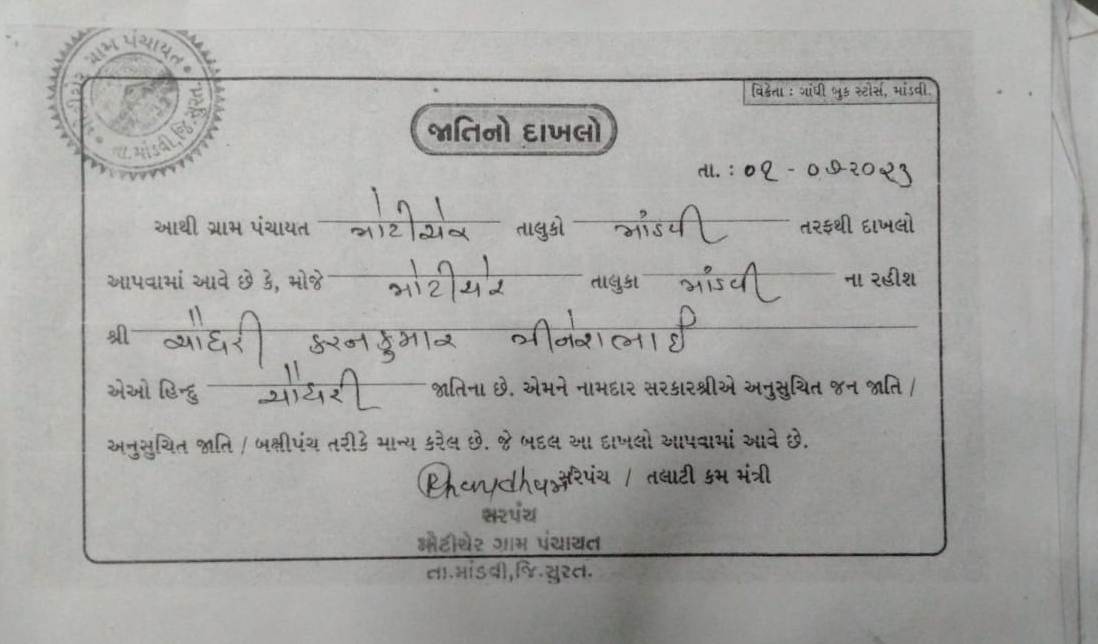 મોટીચેર ગ્રામ પંચાયત
તા.માંડવી,જિ.સુરત.
વિક્રેતા : ગાંધી બુક સ્ટોર્સ, માંડવી.
જાતિનો દાખલો
તા. : ૦૧ - ૦૭-૨૦૨૩
આથી ગ્રામ પંચાયત મોટીચેર તાલુકો માંડવી તરફથી દાખલો
આપવામાં આવે છે કે, મોજે મોટીચેર તાલુકા માંડવી ના રહીશ
શ્રી ચૌધરી કરનકુમાર જીનેશભાઈ
એઓ હિન્દુ ચૌધરી જાતિના છે. એમને નામદાર સરકારશ્રીએ અનુસુચિત જન જાતિ /
અનુસુચિત જાતિ / બક્ષીપંચ તરીકે માન્ય કરેલ છે. જે બદલ આ દાખલો આપવામાં આવે છે.
સરપંચ / તલાટી કમ મંત્રી
સરપંચ
મોટીચેર ગ્રામ પંચાયત
તા.માંડવી,જિ.સુરત.